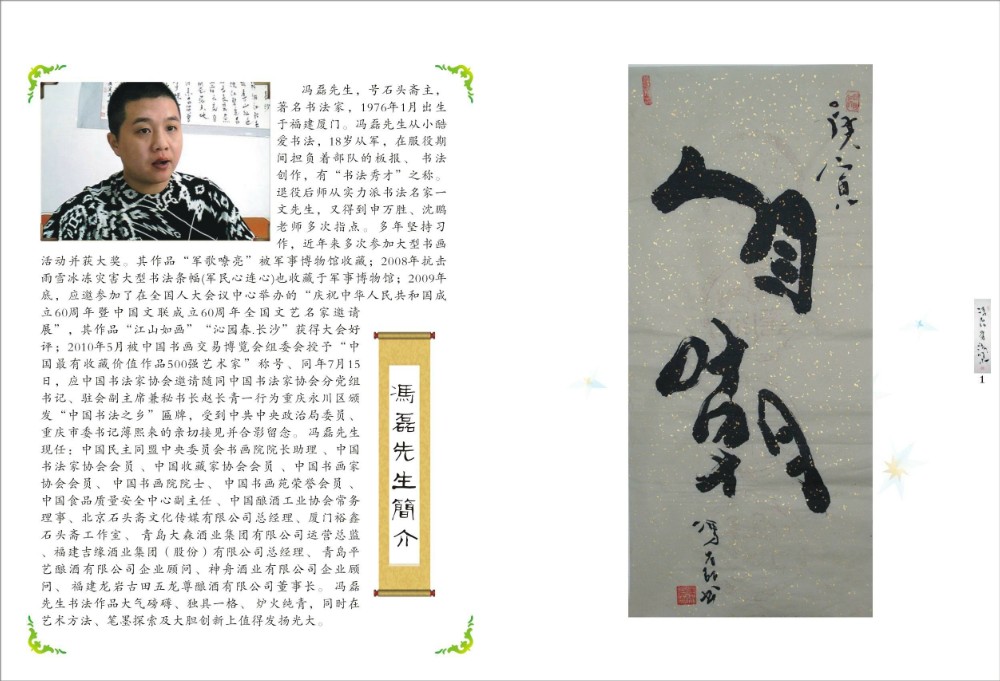 冯磊先生，号石头斋主，
著名书法家，1976年1月出生
于福建厦门。冯磊先生从小酷
爱书法，18岁从军，在服役期
间担负着部队的板报、书法
创作，有“书法秀才”之称。
退役后师从实力派书法名家一
文先生，又得到申万胜、沈鹏
老师多次指点。多年坚持习
作，近年来多次参加大型书画
活动并获大奖。其作品“军歌嘹亮”被军事博物馆收藏；2008年抗击
雨雪冰冻灾害大型书法条幅(军民心连心)也收藏于军事博物馆；2009年
底，应邀参加了在全国人大会议中心举办的“庆祝中华人民共和国成
立60周年暨中国文联成立60周年全国文艺名家邀请
展”，其作品“江山如画”“沁园春.长沙”获得大会好
评；2010年5月被中国书画交易博览会组委会授予“中
国最有收藏价值作品500强艺术家”称号、同年7月15
日，应中国书法家协会邀请随同中国书法家协会分党组
书记、驻会副主席兼秘书长赵长青一行为重庆永川区颁
发“中国书法之乡”匾牌，受到中共中央政治局委员、
重庆市委书记薄熙来的亲切接见并合影留念。冯磊先生
现任：中国民主同盟中央委员会书画院院长助理、中国
书法家协会会员、中国收藏家协会会员、中国书画家
协会会员、中国书画院院士、中国书画苑荣誉会员、
中国食品质量安全中心副主任、中国酿酒工业协会常务
理事、北京石头斋文化传媒有限公司总经理、厦门裕鑫
石头斋工作室、青岛大森酒业集团有限公司运营总监
、福建吉缘酒业集团（股份）有限公司总经理、青岛平
艺酿酒有限公司企业顾问、神舟酒业有限公司企业顾
问、福建龙岩古田五龙尊酿酒有限公司董事长。冯磊
先生书法作品大气磅礴、独具一格、炉火纯青，同时在
艺术方法、笔墨探索及大胆创新上值得发扬光大。
馮磊先生簡介
1